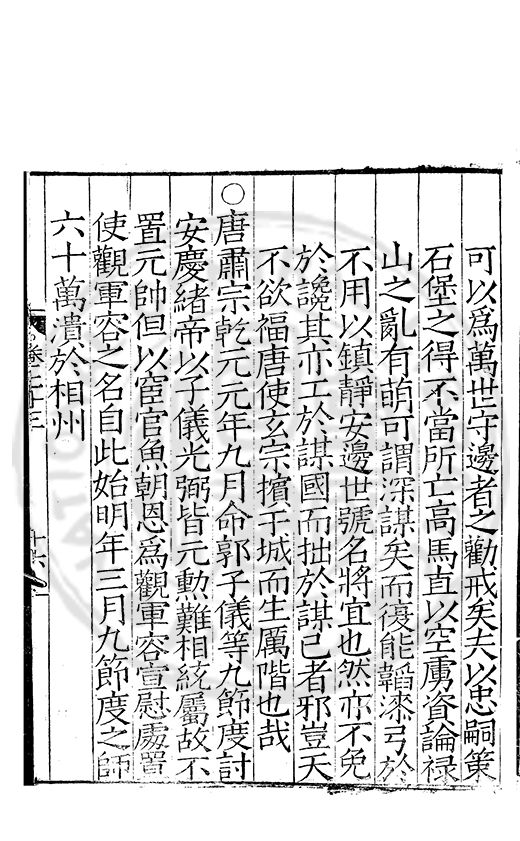 可以爲萬世守邊者之勸戒矣夫以忠嗣策
石堡之得不當所亡高馬直以空虜資論禄
山之亂有萌可謂深謀矣而復能韜漆弓於
不用以鎮靜安邊世號名將宜也然亦不免
於讒其亦工於謀國而拙於謀己者邪豈天
不欲福唐使玄宗擯干城而生厲階也哉
○唐肅宗乾元元年九月命郭子儀等九節度討
安慶緒帝以子儀光弼皆元勳難相統屬故不
置元帥但以宦官魚朝恩爲觀軍容宣慰處置
使觀軍容之名自此始明年三月九節度之師
六十萬潰於相州